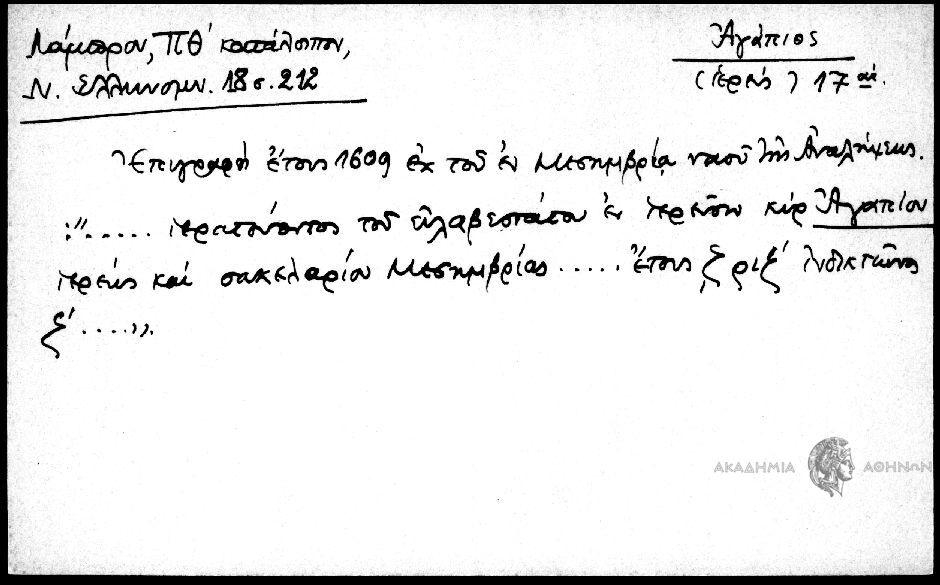 Λάμπρου, ΠΘ' κατάλοιπον,
Ν. Ελληνομν. 18 σ. 212
Ἀγάπιος
(ἱερεύς) 17 αἰ.
Ἐπιγραφή ἔτους 1609 ἐκ τοῦ ἐν Μεσημβρίᾳ ναοῦ τῆς Ἀναλήψεως.
:"..... ἱερατεύοντος τοῦ εὐλαβεστάτου ἐν ἱερεῦσιν κὺρ Ἀγαπίου
ἱερεὺς καὶ σακελαρίου Μεσημβρίας ..... ἔτους ζριζ' ἰνδικτιῶνος
ζ' ....».
ΑΚΑΔΗΜΙΑ ΑΘΗΝΩΝ